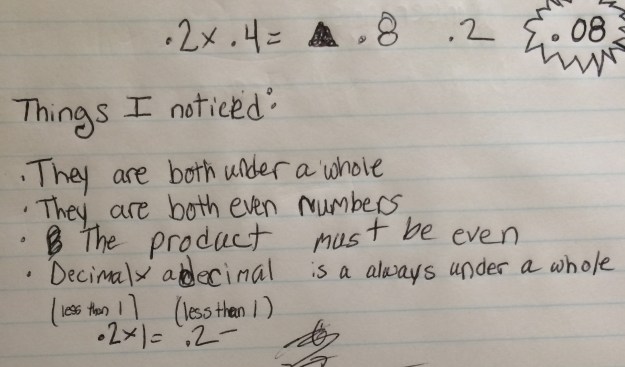 .2x .4= .8 .2 .08
Things I noticed:
· They are both under a whole
· They are both even numbers
· The product must be even
· Decimal x a decimal is a always under a whole
(less than 1) (less than 1)
.2x1= .2-